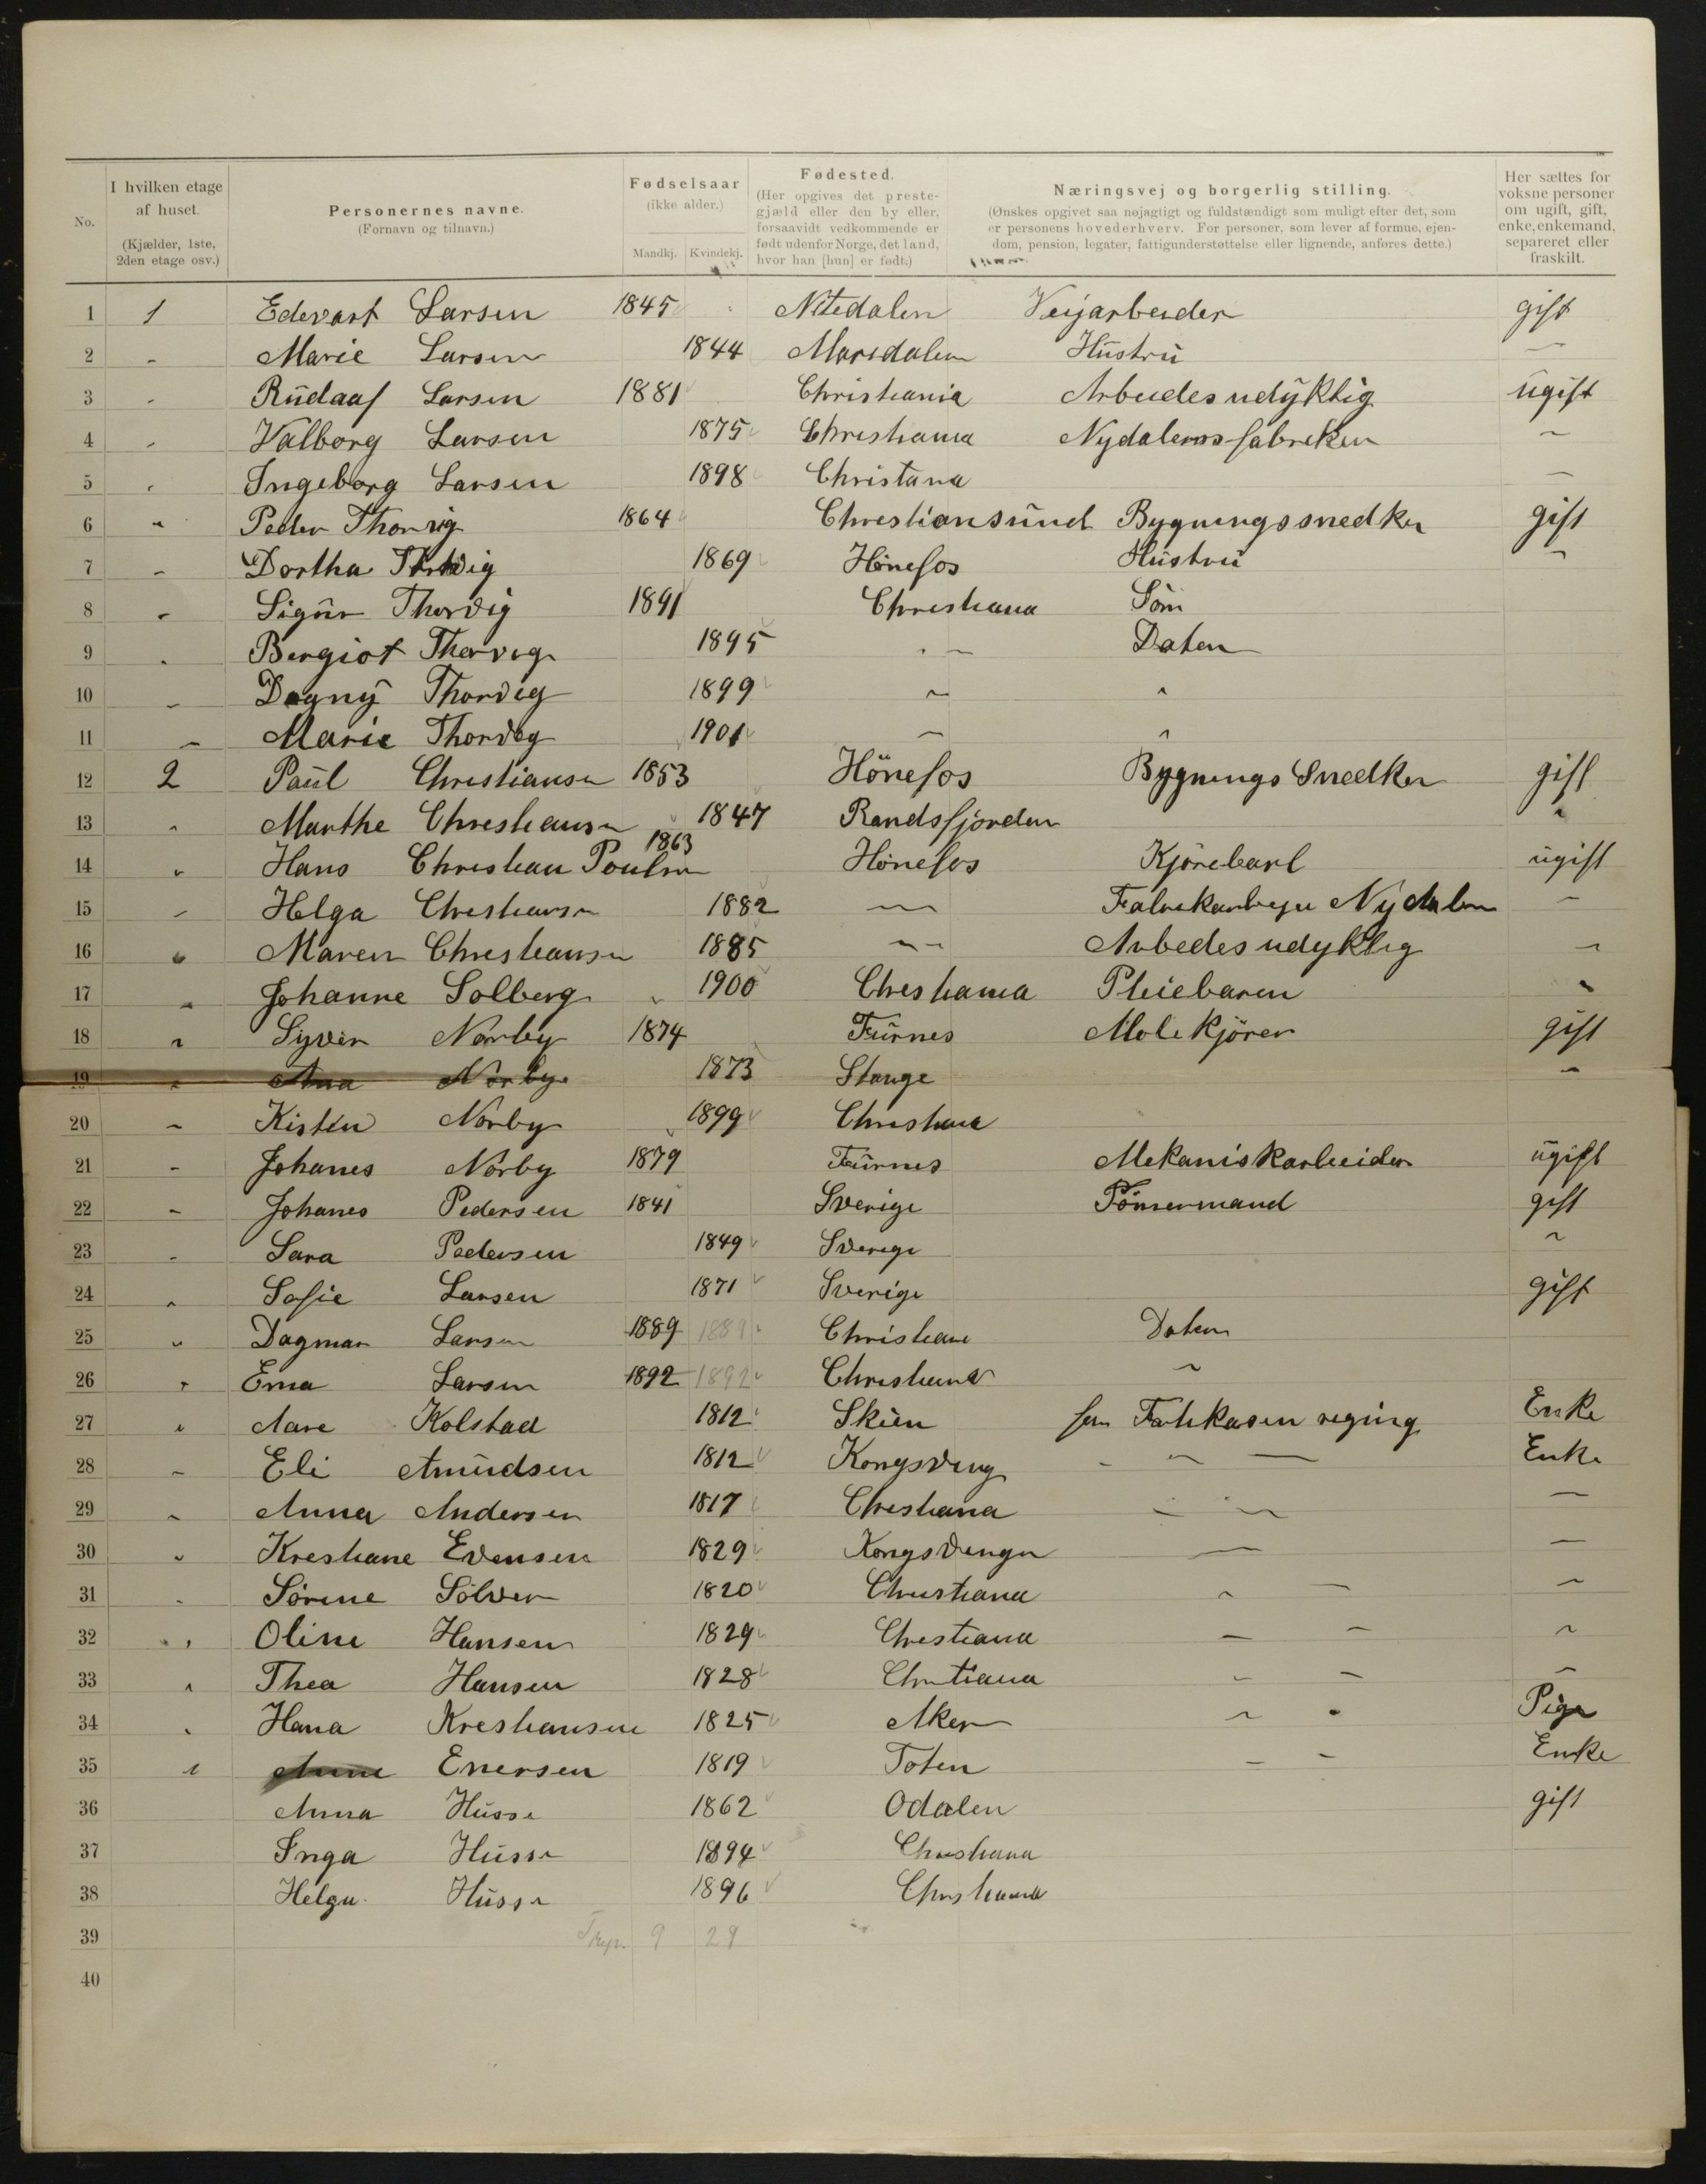 No. I hvilken etage af huset. (Kjælder, 1ste, 2den etage osv.) Personernes navne. (Fornavn og tilnavn.) Fødselsaar (ikke alder.) Mandkj. Kvindekj. Fødested. (Her opgives det prestegjæld eller den by eller, forsaavidt vedkommende er født udenfor Norge, det land, hvor han [hun] er født.) Næringsvej og borgerlig stilling. (Ønskes opgivet saa nøjagtigt og fuldstændigt som muligt efter det, som er personens hovederhverv. For personer, som lever af formue, ejendom, pension, legater, fattigunderstøttelse eller lignende, anføres dette.) Her sættes for voksne personer om ugift, gift, enke, enkemand, separeret eller fraskilt.
1 1 Edevart Larsen 1845 Nitedalen Veijarbeider gift
2 " Marie Larsen 1844 Maridalen Hustru —
3 " Rudaaf Larsen 1881 Christiania Arbeidesudyktig ugift
4 " Valborg Larsen 1875 Christiania Nydalensfabreken —
5 " Ingeborg Larsen 1898 Christana —
6 " Peder Thorvig 1864 Christiansund Bygningssnedker gift
7 " Dortha Thorvig 1869 Hönefos Hustru "
8 " Sigur Thorvig 1891 Christiana Sön
9 " Bergiot Thorvig 1895 " — Daten
10 " Dagny Thorvig 1899 " "
11 " Marie Thorvig 1901 " "
12 2 Paul Christiansen 1853 Hönefos Bygnings Snedker gift
13 " Marthe Christiansen 1847 Randsfjorden "
14 " Hans Christian Poulsen 1863 Hönefos Kjörekarl ugift
15 " Helga Christiansen 1882 — Nydalen —
16 " Maren Christiansen 1885 — Arbedesudyktig —
17 " Johanne Solberg 1900 Christiania Pleiebaren "
18 " Syver Norby 1874 Furnes Molekjörer gift
19 " Ana Norby 1873 Stange "
20 " Kisten Norby 1899 Christiana
21 " Johanes Norby 1879 Furnes Mekaniskarbeider ugift
22 " Johanes Pedersen 1841 Sverige Tömermand gift
23 " Sara Pedersen 1849 Sverige "
24 " Sofie Larsen 1871 Sverige gift
25 " Dagmar Larsen 1889 1889 Christiane Daten
26 " Ema Larsen 1892 1892 Christiana "
27 " Aare Kolstad 1812 Skien Enke
28 " Eli Amundsen 1812 Kongsving " — — Enke
29 " Anna Andersen 1817 Christiana — — —
30 " Kristiane Evensen 1829 Kongsvinger — —
31 " Sörine Sölver 1820 Christiana " — —
32 " Oline Hansen 1829 Christiana — — "
33 " Thea Hansen 1828 Christiana — — —
34 " Hana Kristiansen 1825 Aker " " Pige
35 " Anne Enersen 1819 Toten — — Enke
36 Anna Husse 1862 Odalen gift
37 Inga Husse 1894 Christiana
38 Helga Husse 1896 Christiania
39 9 29
40